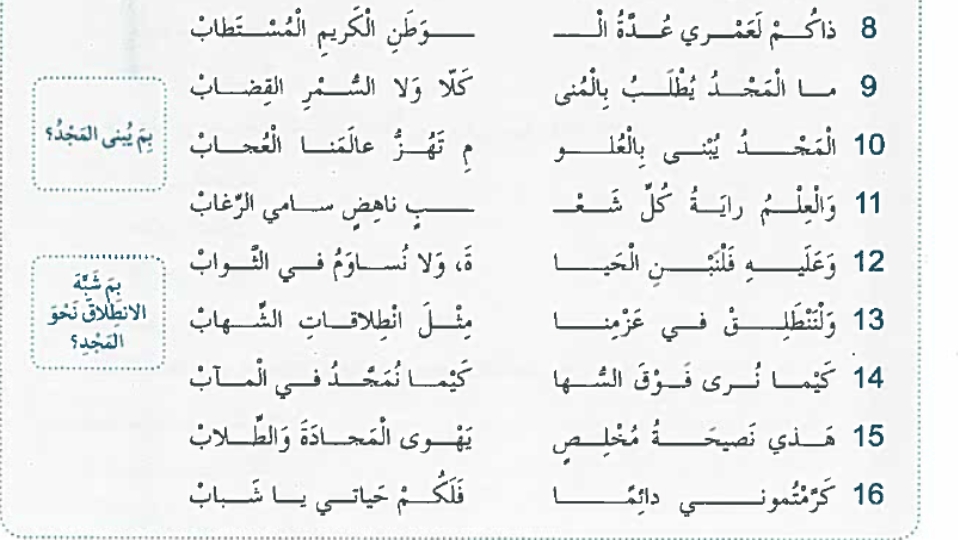 8 ذاكُمْ لَعَمْري عُدَّةُ الْـ ـوَطَنِ الْكَريمِ الْمُسْتَطابْ
9 ما الْمَجْدُ يُطْلَبُ بِالْمُنى كَلّا وَلا السُّمْرِ القِضابْ
بِمَ يُبنى المَجْدُ؟
10 الْمَجْدُ يُبْنى بِالْعُلو مِ تَهُزُّ عالَمَنا الْعُجابْ
11 وَالْعِلْمُ رايَةُ كُلِّ شَعْـ ـبٍ ناهِضٍ سامي الرِّغابْ
12 وَعَلَيْهِ فَلْنَبْنِ الْحَيا ةَ، وَلا نُساوَمُ في الثَّوابْ
بِمَ شَبَّهَ
الانطِلاقَ نَحْوَ
المَجْدِ؟
13 وَلْنَنْطَلِقْ في عَزْمِنا مِثْلَ انْطِلاقاتِ الشَّهابْ
14 كَيْما نُرى فَوْقَ السُّها كَيْما نُمَجَّدُ في الْمآبْ
15 هَذي نَصيحَةُ مُخْلِصٍ يَهْوى الْمَجادَةَ وَالطِّلابْ
16 كَرَّمْتُموني دائِمًا فَلَكُمْ حَياتي يا شَبابْ